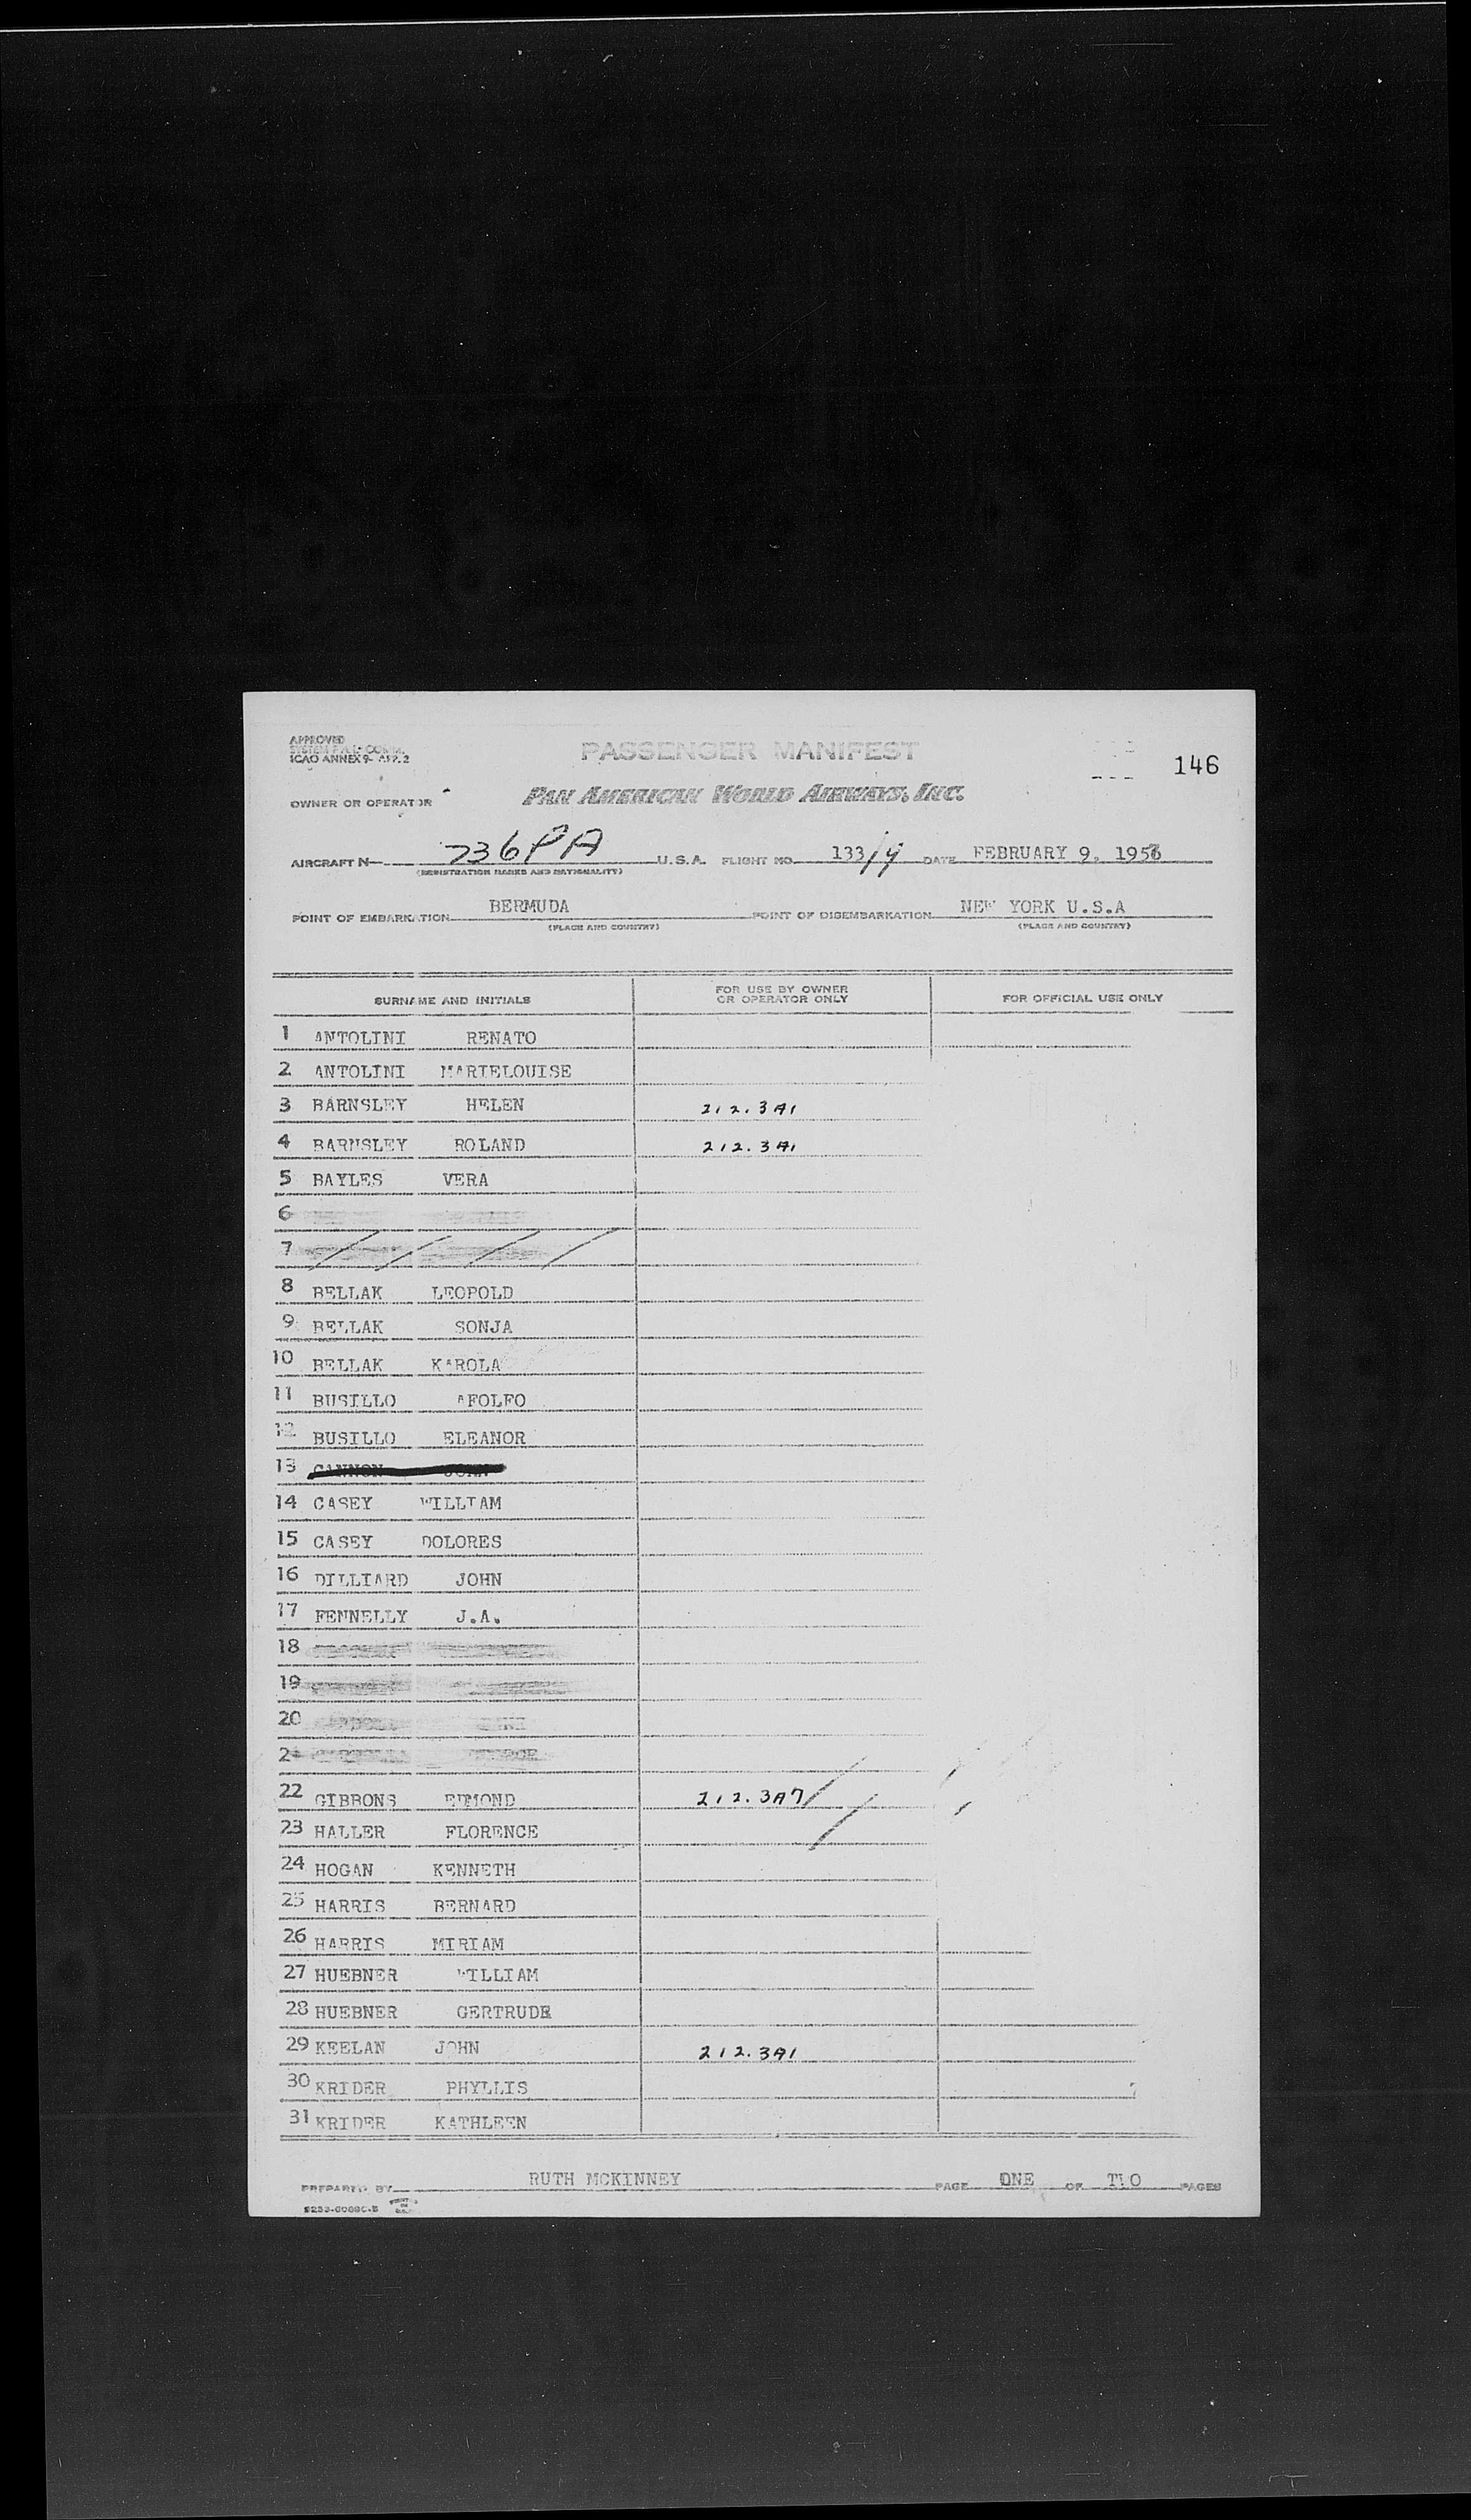 APPROVED
ICAO ANNEX 9- APP. 2
PASSENGER MANIFEST
146
OWNER OR OPERATOR
PAN AMERICAN WORLD AIRWAYS, INC.
AIRCRAFT N— 736PA U.S.A. FLIGHT NO. 133/9 DATE FEBRUARY 9, 1953
(REGISTRATION MARKS AND NATIONALITY)
POINT OF EMBARKATION BERMUDA POINT OF DISEMBARKATION NEW YORK U.S.A
(PLACE AND COUNTRY) (PLACE AND COUNTRY)
SURNAME AND INITIALS FOR USE BY OWNER OR OPERATOR ONLY FOR OFFICIAL USE ONLY
1 ANTOLINI RENATO
2 ANTOLINI MARIELOUISE
3 BARNSLEY HELEN 212.3A1
4 BARNSLEY ROLAND 212.3A1
5 BAYLES VERA
6
7
8 BELLAK LEOPOLD
9 BELLAK SONJA
10 BELLAK KAROLA
11 BUSILLO AFOLFO
12 BUSILLO ELEANOR
13 CANNON JOHN
14 CASEY WILLIAM
15 CASEY DOLORES
16 DILLIARD JOHN
17 FENNELLY J.A.
18
19
20
21
22 GIBBONS EDMOND 212.3A7
23 HALLER FLORENCE
24 HOGAN KENNETH
25 HARRIS BERNARD
26 HARRIS MIRIAM
27 HUEBNER WILLIAM
28 HUEBNER GERTRUDE
29 KEELAN JOHN 212.3A1
30 KRIDER PHYLLIS
31 KRIDER KATHLEEN
PREPARED BY RUTH MCKINNEY PAGE ONE OF TWO PAGES